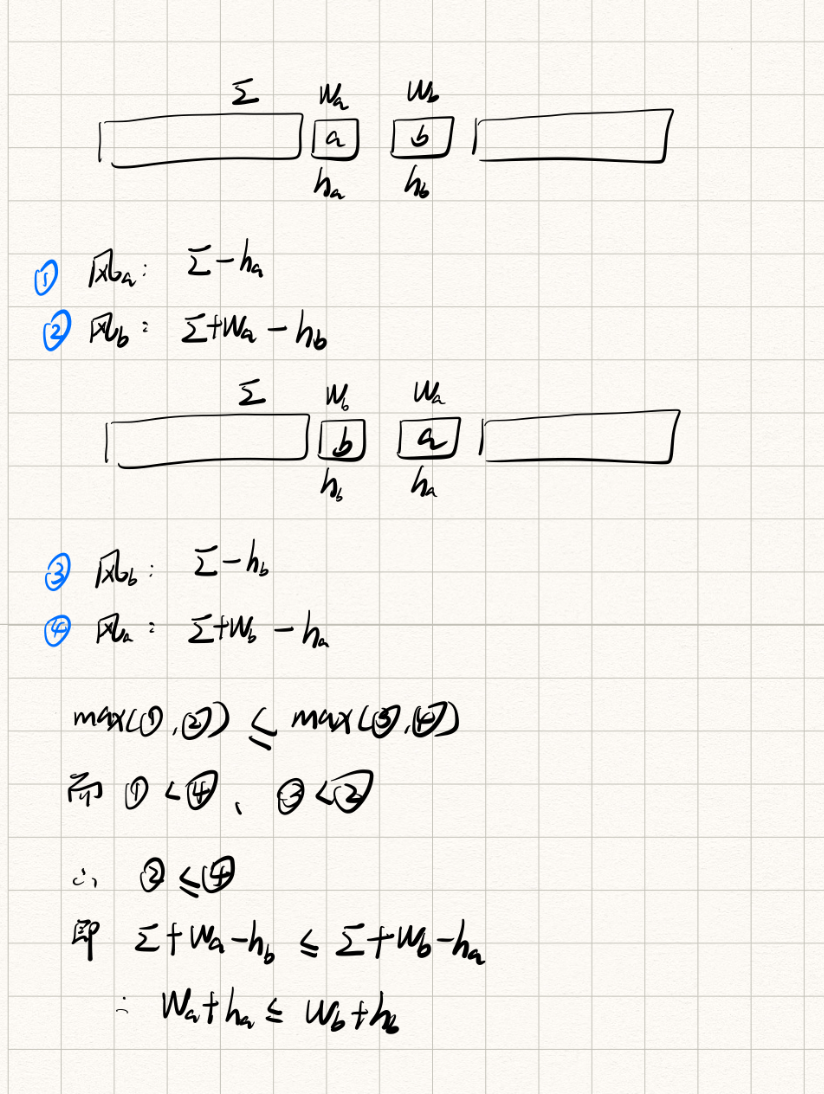 Σ Wa Wb
a b
ha hb
① 风a: Σ-ha
② 风b: Σ+Wa-hb
Σ Wb Wa
b a
hb ha
③ 风b: Σ-hb
④ 风a: Σ+Wb-ha
max(①,②) ≤ max(③,④)
而 ①<④、③<②
∴ ②≤④
即 Σ+Wa-hb ≤ Σ+Wb-ha
∴ Wa+ha ≤ Wb+hb